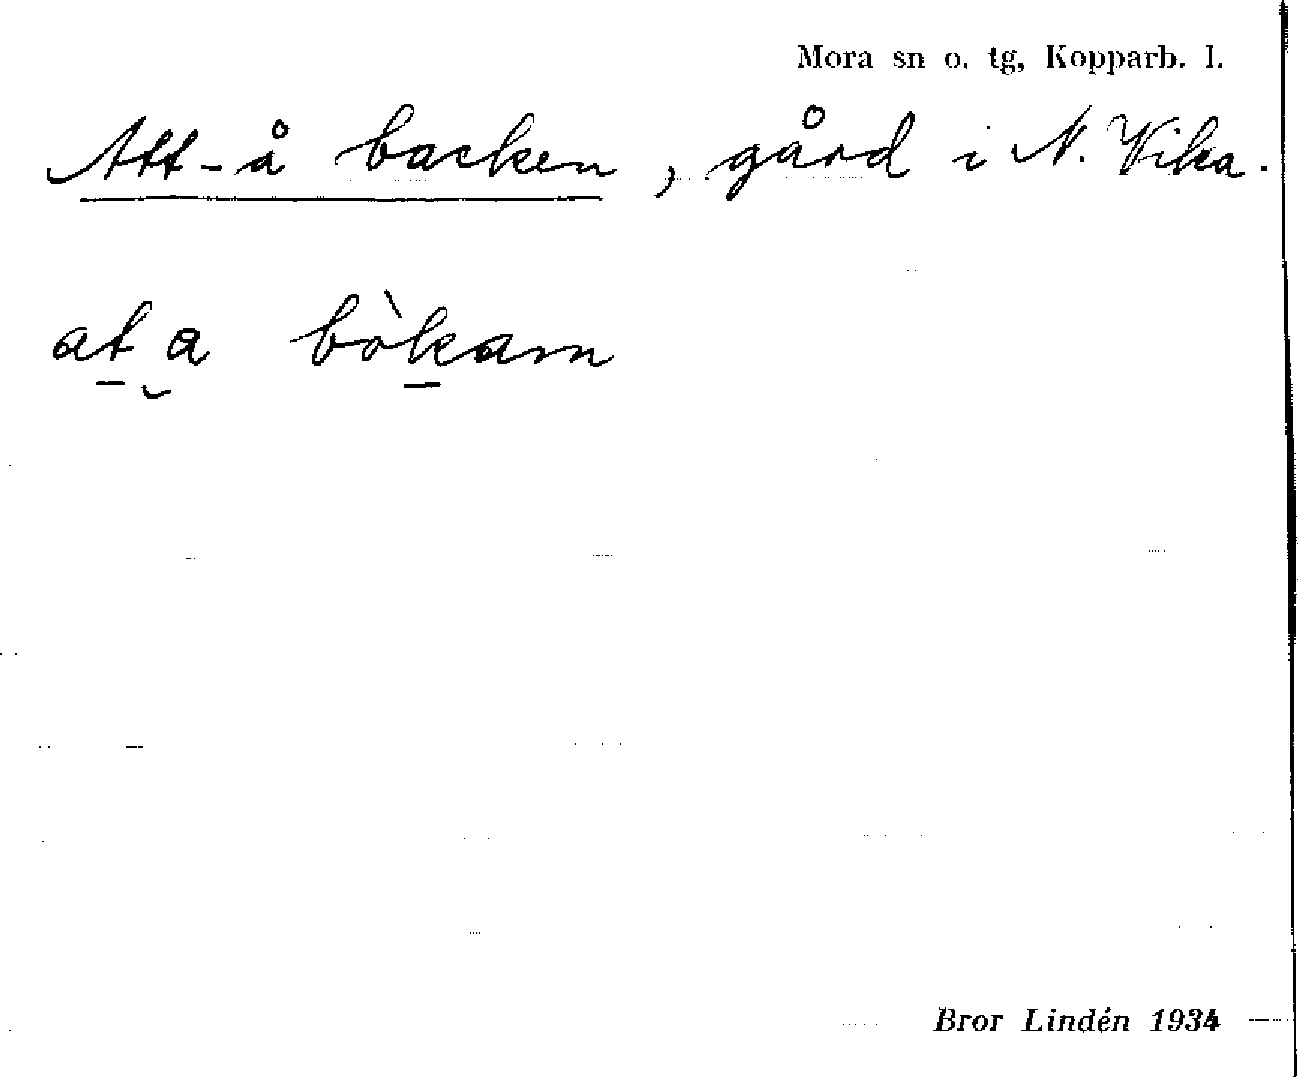 Mora sn o. tg, Kopparb. l.
Att-å backen, gård i N. Vika.
at a bòkam
Bror Lindén 1934